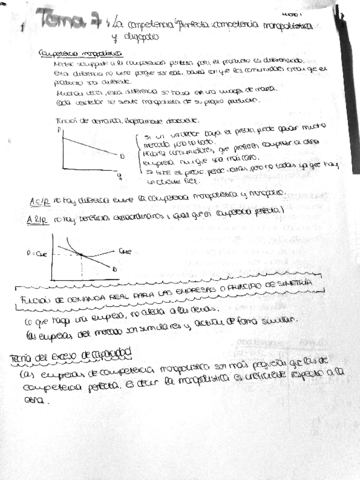 Tema 7: La competencia perfecta, competencia monopolística
y duopolio
Competencia monopolística
la competencia perfecta pero el producto es diferenciado.
Esta diferencia no tiene porque ser real, basta con que los consumidores crean que el
producto sea diferente.
Muchas veces, esta diferencia se basa en una imagen de marca.
Cada vendedor se siente monopolista de su propio producto.
Función de demanda, ligeramente descendente.
P
D
q
Si un vendedor baja el precio, puede ganar mucho
mercado
Habrá consumidores que prefieren comprar a otra
empresa aunque sea más caro.
Si sube el precio, pierde pero no todas ya que hay
A C/P no hay diferencia entre la competencia monopolística y monopolio.
A L/P no hay beneficios extraordinarios (igual que en competencia perfecta)
P = CMe
CMe
D
FUNCIÓN DE DEMANDA REAL PARA LAS EMPRESAS O PRINCIPIO DE SIMETRÍA
Lo que haga una empresa, no afecta a las demás.
Las empresas del mercado son similares y actúan de forma similar.
Teoría del exceso de capacidad
Las empresas de competencia monopolística son más pequeñas que las de
competencia perfecta, es decir la monopolística es ineficiente respecto a la
otra.